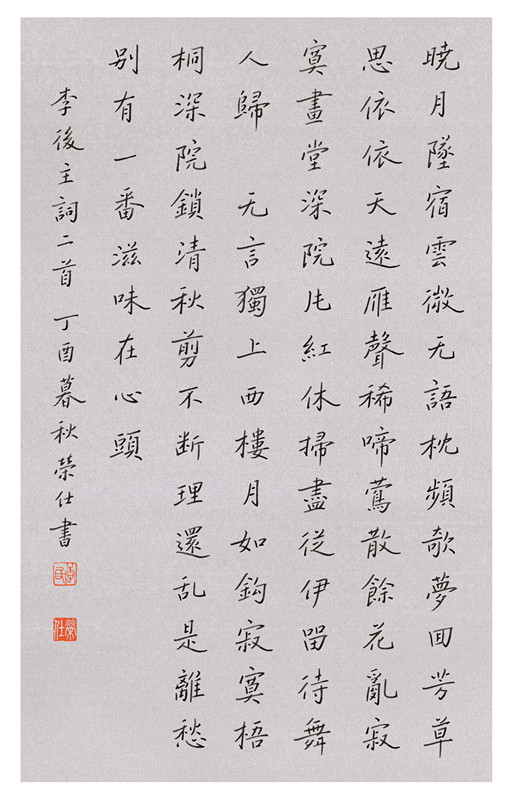 曉月墜宿雲微无語枕頻欹夢囬芳草
思依依天遠雁聲稀啼鶯散餘花亂寂
寞畫堂深院片紅休掃盡從伊留待舞
人歸 无言獨上西樓月如鈎寂寞梧
桐深院鎖清秋剪不断理還乱是離愁
别有一番滋味在心頭
李後主詞二首丁酉暮秋榮仕書